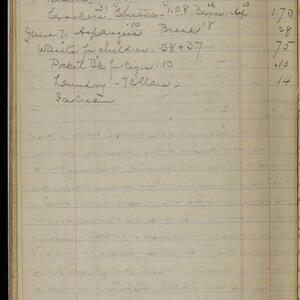 Crackers .31 Cheese 1.08 Bananas 10 1.73
June 7. Asparagus .10 Bread 18 28
Waists for children. 38 + 37 75
Pocket Bk for Eggs. 10 .10
Laundry - 7 Collars. .14
Ice cream